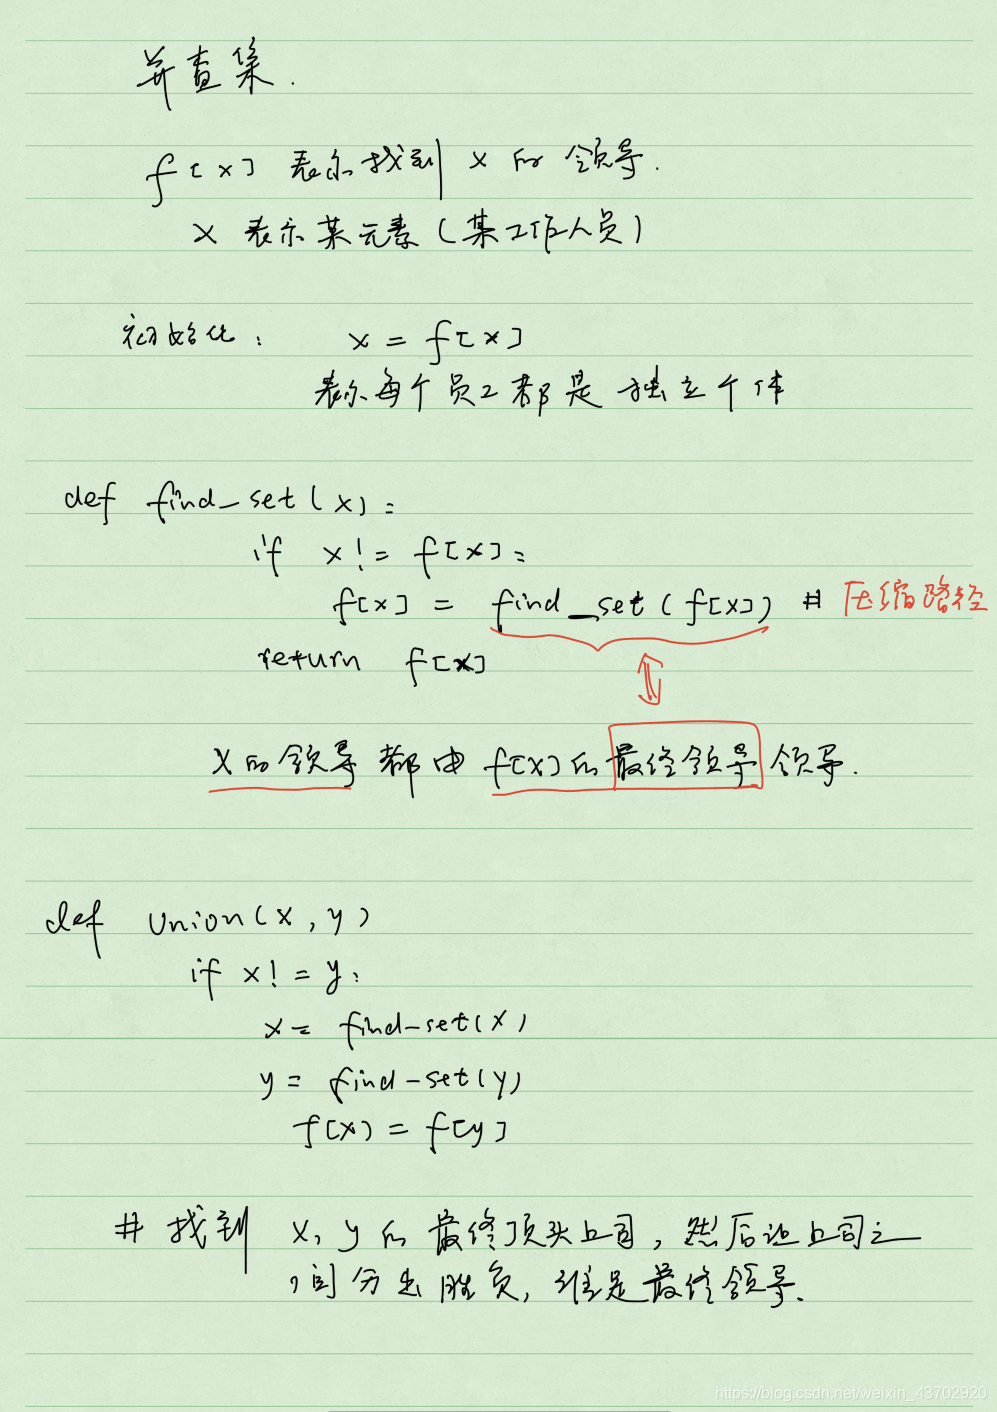 并查集.
f[x] 表示找到 x 的 领导.
x 表示某元素(某工作人员)
初始化: x = f[x]
表示每个员工都是独立个体
def find_set(x):
if x != f[x]:
f[x] = find_set(f[x]) # 压缩路径
return f[x]
x的领导都由f[x]的最终领导领导.
def Union(x, y)
if x != y:
x = find-set(x)
y = find-set(y)
f[x] = f[y]
# 找到 x, y 的最终顶头上司, 然后让上司之
间分出胜负, 谁是最终领导.
https://blog.csdn.net/weixin_43702920